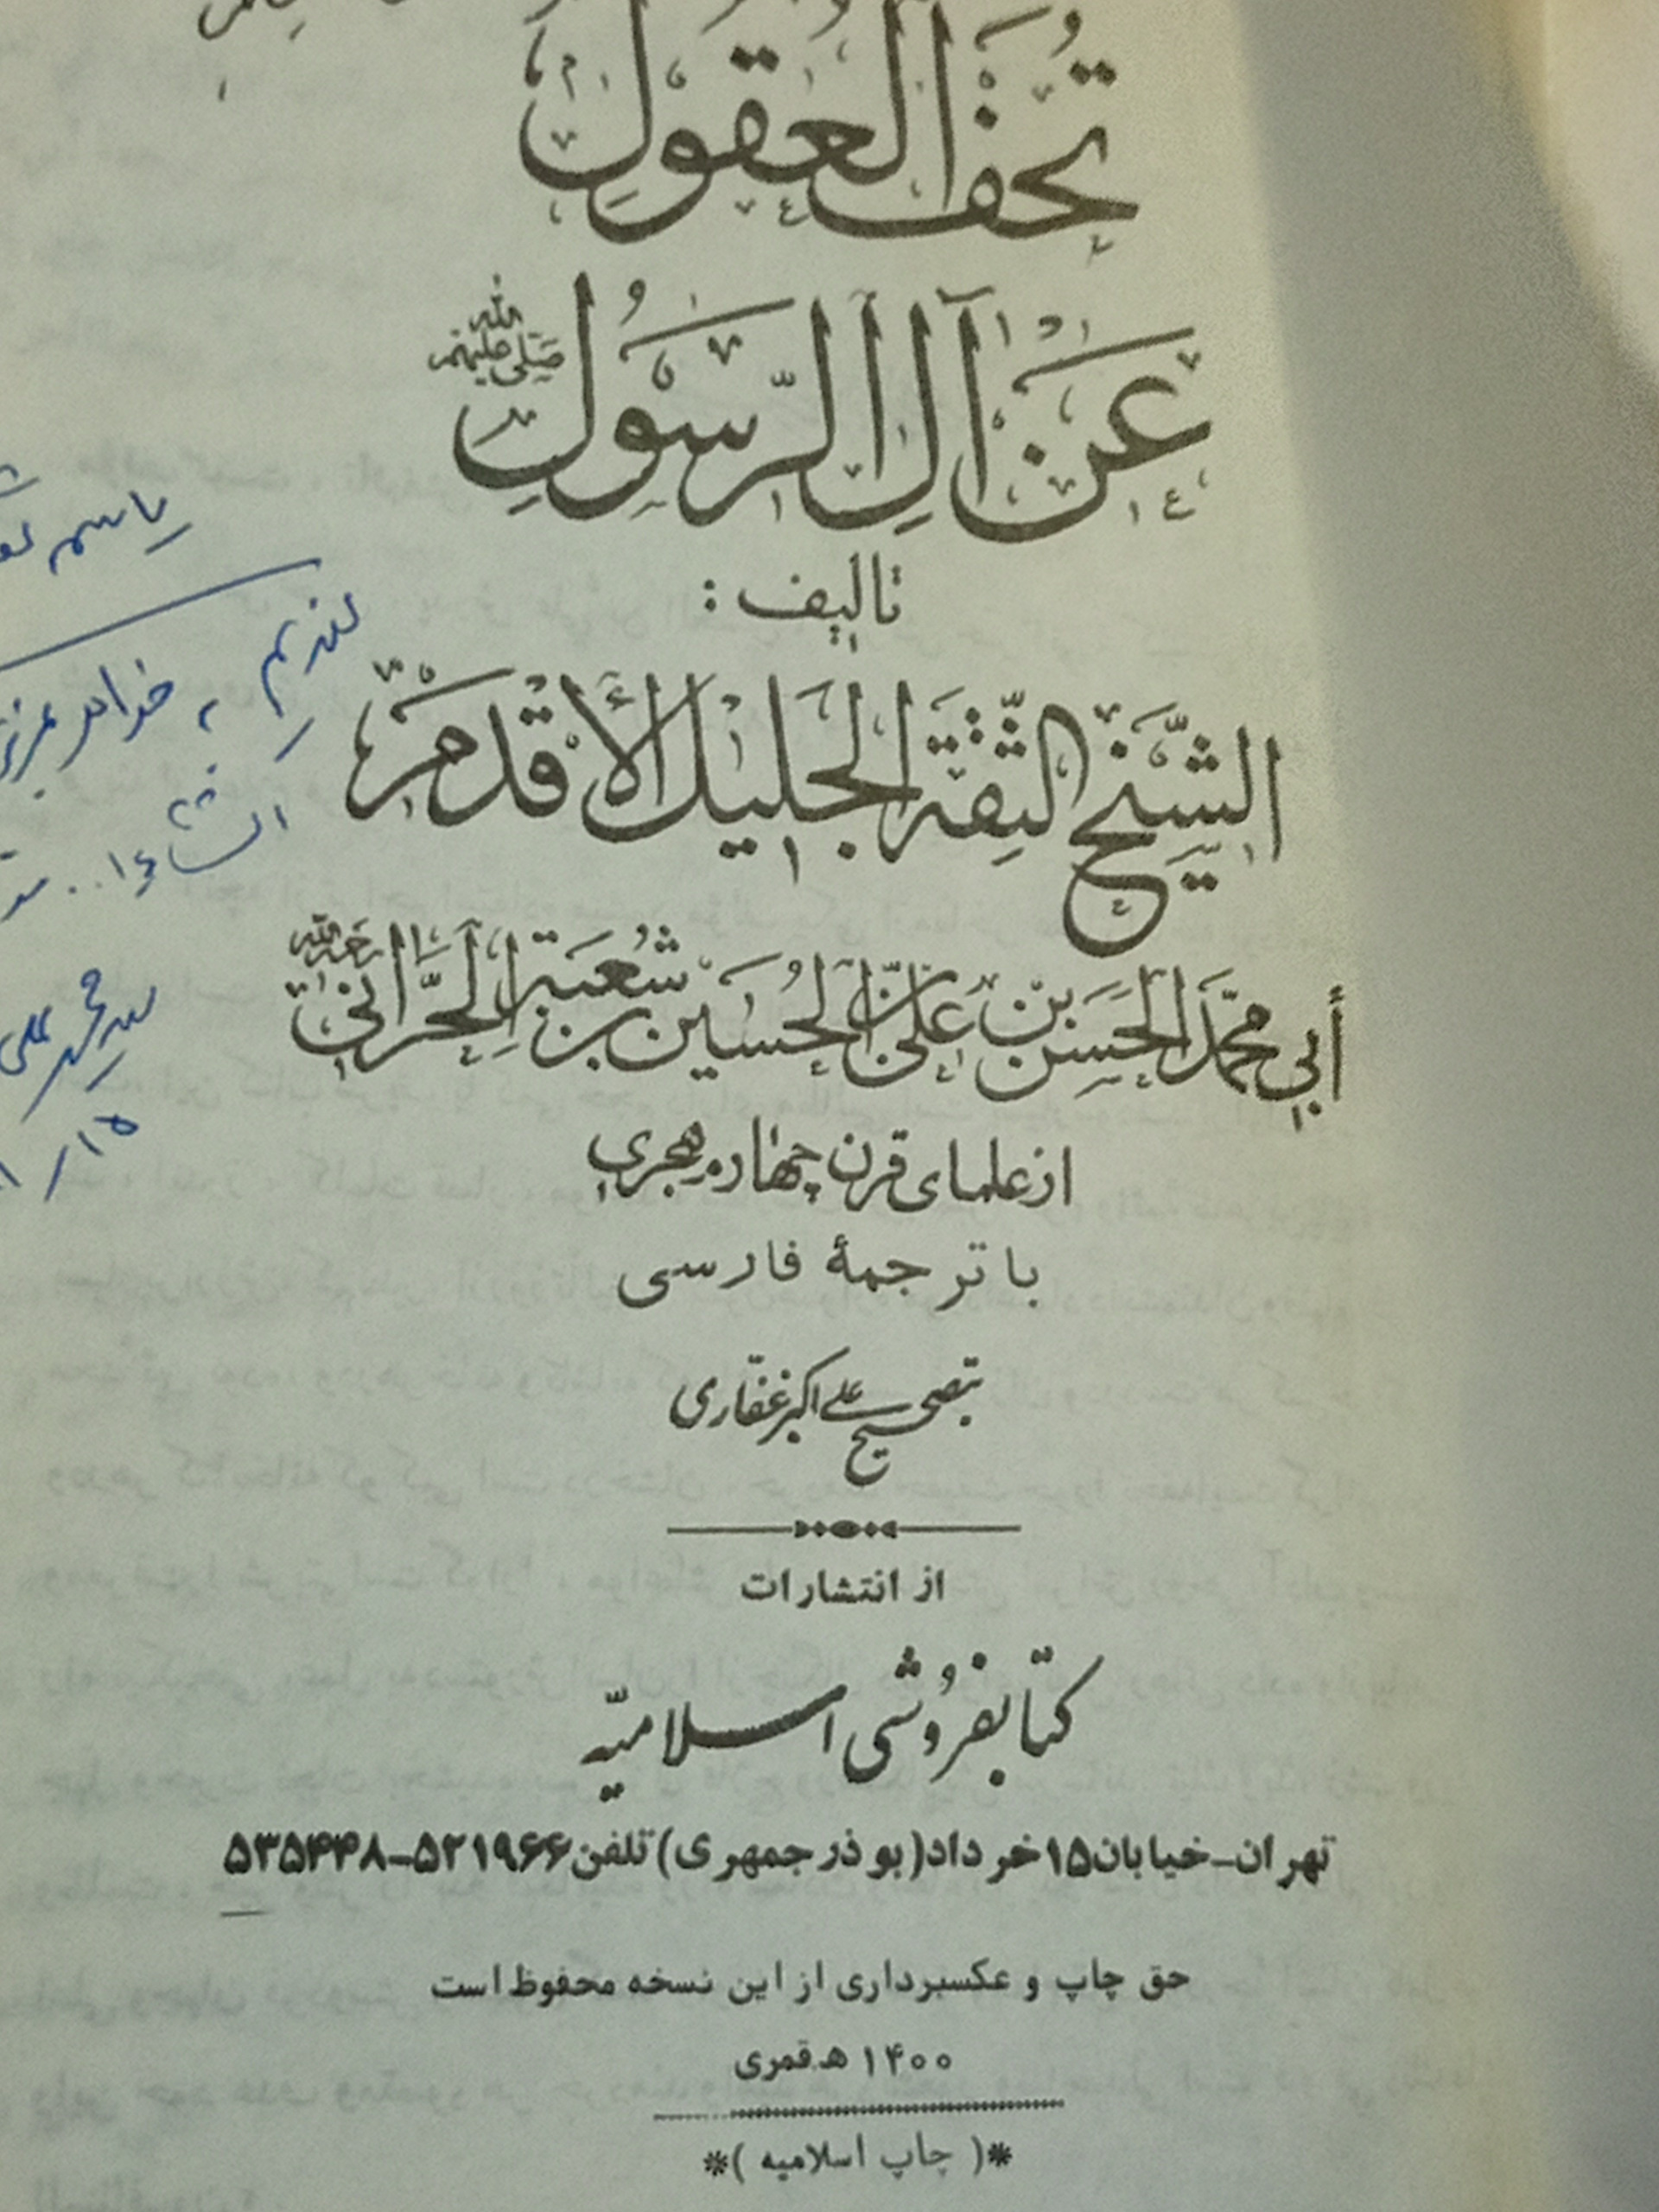 تُحَفُ الْعُقُولِ
عَنْ آلِ الرَّسُولِ صَلَّى اللهُ عَلَيْهِمْ
تألیف :
الشَّيْخُ الثِّقَةُ الْجَلِيلُ الْأَقْدَمُ
أَبِي مُحَمَّدٍ الْحَسَنُ بْنُ عَلِيِّ بْنِ الْحُسَيْنِ بْنِ شُعْبَةِ الْحَرَّانِي رَحِمَهُ الله
از علمای قرن چهارم هجری
با ترجمهٔ فارسی
بتصحیح علی اکبر غفّاری
از انتشارات
کتابفروشی اسلامیّه
تهران-خیابان ۱۵ خرداد (بوذرجمهری) تلفن ۵۲۱۹۶۶-۵۳۵۴۴۸
حق چاپ و عکسبرداری از این نسخه محفوظ است
۱۴۰۰ ه‍.قمری
*( چاپ اسلامیه )*
باسمه
تقدیم به خواهر
انشاءا..
سید محمد علی